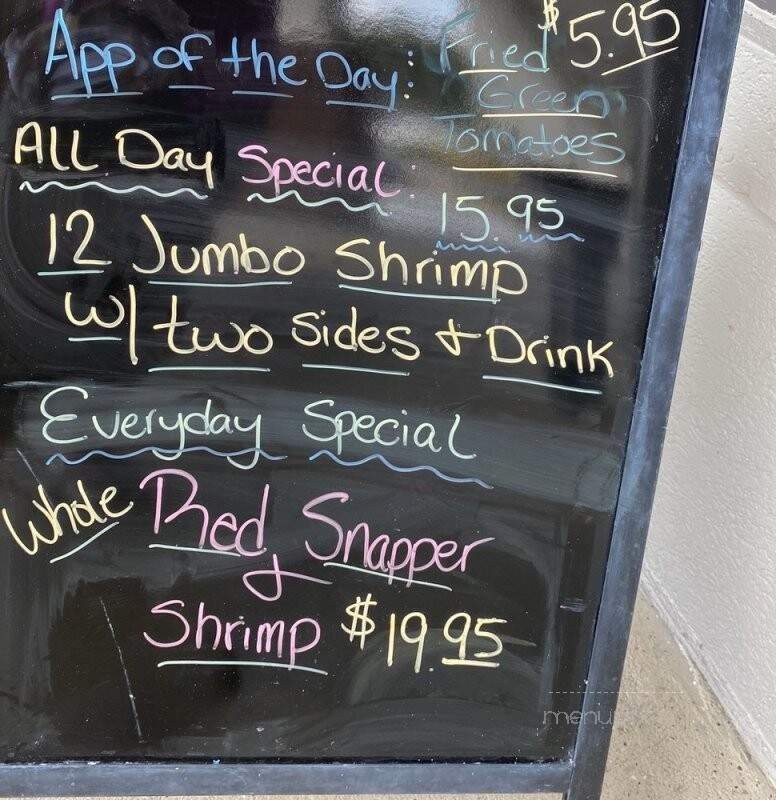 App of the Day: Fried $5.95
Green
Tomatoes
ALL Day Special: 15.95
12 Jumbo Shrimp
w/ two sides + Drink
Everyday Special
Whole Red Snapper
+
Shrimp $19.95